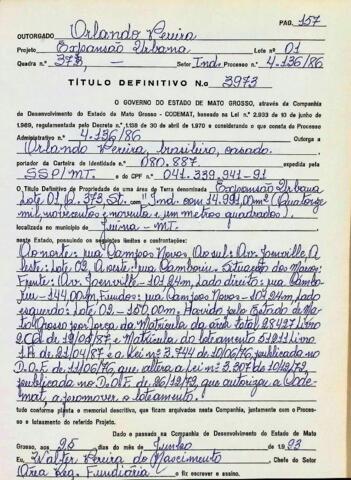 PAG. 157
OUTORGADO Orlando Pereira
Projeto Expansão Urbana Lote nº 01
Quadra n.º 373, — Setor Ind. Processo n.º 4.136/86
TÍTULO DEFINITIVO N.o 3973
O GOVERNO DO ESTADO DE MATO GROSSO, através da Companhia
de Desenvolvimento do Estado de Mato Grosso - CODEMAT, baseado na Lei n.º 2.933 de 10 de junho de
1969, regulamentada pelo Decreto n.º 1.138 de 30 de abril de 1970 e considerando o que consta do Processo
Administrativo n.º 4.136/86 Outorga a
Orlando Pereira, brasileiro, casado.
portador da Carteira de Identidade n.º 080.887. expedida pela
SSP/MT. e do CPF n.º 041.339.941-91
O Título Definitivo de Propriedade de uma área de Terra denominada Expansão Urbana
Lote 01, Q. 373, St. "Ind. com 14.991,00m² (Quatorze
mil, novecentos e noventa e um metros quadrados).
localizada no município de Juina - MT.
neste Estado, possuindo os seguintes limites e confrontações:
Ao norte: rua Campos Novos. Ao sul: Av. Joinville, A
leste: Lote 02. A oeste: rua Camboriu. Situação do Marco:
Frente: Av. Joinville - 101,24m, Lado direito: rua Cambo-
riu - 144,00m, Fundos: rua Campos Novos - 101,24m, Lado
esquerdo: Lote 02 - 150,00m. Havido pelo Estado de Ma-
to Grosso por força da Matrícula da área total 28427 Livro
e Matrícula do loteamento 51211 Livro
de 21/04/87 e a Lei nº 3.744 de 10/06/76, publicado no
D.O.E. de 11/06/76 que altera a Lei nº 3.307 de
publicada no D.O.E. de 26/12/72, que autoriza a Code-
mat, a promover o loteamento.
tudo conforme planta e memorial descritivo, que ficam arquivados nesta Companhia, juntamente com o Proces-
so e loteamento do referido Projeto.
Dado e passado na Companhia de Desenvolvimento do Estado de Mato
Grosso, aos 25 dias do mês de Junho de 1993
Eu, Walter Pereira do Nascimento, Chefe do Setor
Área Reg. Fundiária o fiz escrever e assino.